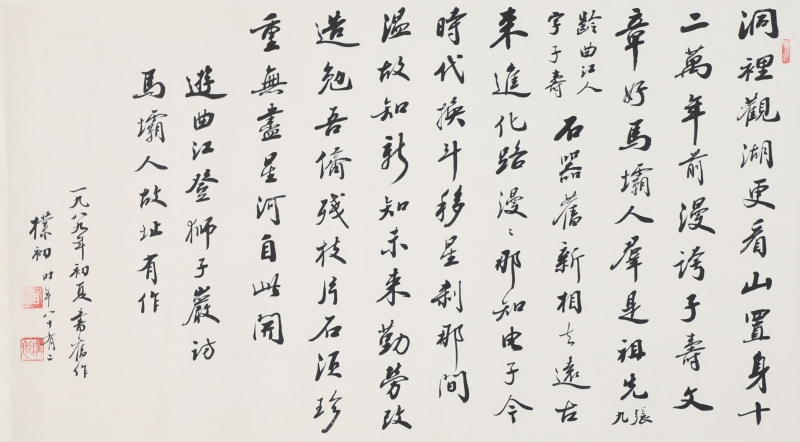 洞裡觀湖更看山置身十
二萬年前漫誇子壽文
章好馬壩人群是祖先張九
齡曲江人字子壽石器舊新相去遠古
來進化路漫〻那知电子今
時代換斗移星剎那間
溫故知新知未来勤勞改
造勉吾儕殘枝片石須珍
重無盡星河自此開
遊曲江登獅子巖訪
馬壩人故址有作
一九八九年初夏書舊作
樸初时年八十有二